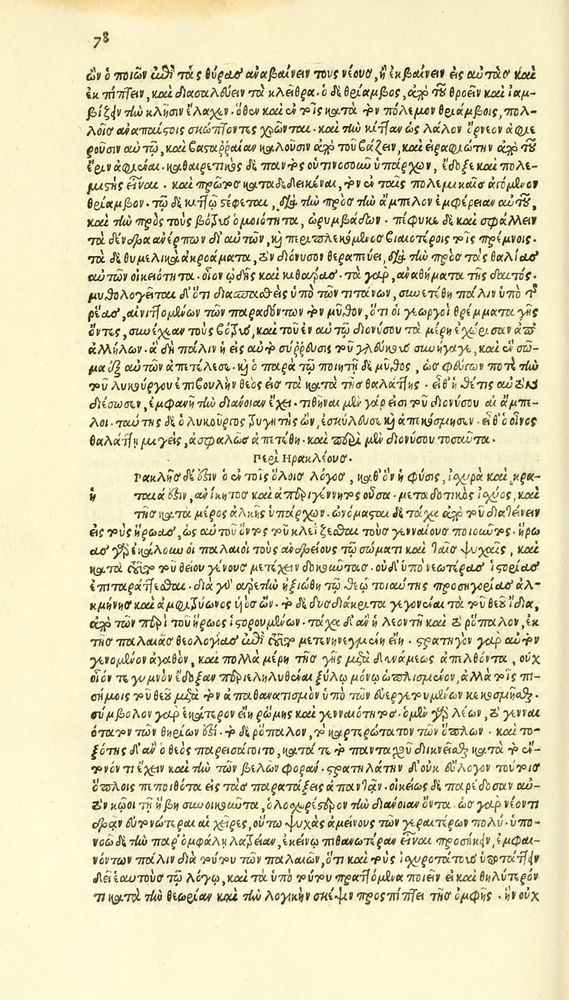 78
ὧν ὁ ποιῶν ἐπὶ τὰς θύρας ἀναβαίνειν τοὺς νέους, ἢ ἐκβαίνειν εἰς αὐτὰς καὶ
ἐκπίπτειν, καὶ διασαλθύειν τὰ κλεῖθρα. ὁ δὲ θρίαμβος, ἀπὸ τοῦ θροεῖν καὶ ἰαμ-
βίζειν τὴν κλῆσιν ἔλαχεν. ὅθεν καὶ ἐν τοῖς κατὰ τὸν πόλεμον θριάμβοις, πολ-
λοῖς ἀναπαίστοις σκώπτοντες χρῶνται. καὶ τὴν κίτταν ὡς λάλον ὄρνεον ἀφιε
ροῦσιν αὐτῷ, καὶ βασσαραῖαν καλοῦσιν ἀπὸ τοῦ βάζειν, καὶ εἰραφιώτην ἀπὸ τοῦ
ἔριν ἀφιέναι. καθαιρετικὸς δὲ παντὸς οὑτινοσοῦν ὑπάρχων, ἔδοξε καὶ πολε-
μιστὴς εἶναι. καὶ πρῶτος καταδεδεικέναι, τὸν ἐν ταῖς πολεμικαῖς ἀγόμενον
θρίαμβον. τῷ δὲ κιττῷ στέφεται, διὰ τὴν πρὸς τὴν ἄμπελον ἐμφέρειαν αὐτοῦ,
καὶ τὴν πρὸς τοὺς βότρυς ὁμοιότητα, κορυμβάσων. πέφυκε δὲ καὶ σφάλλειν
τὰ δένδρα ἀνέρπων δι αὐτῶν, καὶ περιπλεκόμενος βιαιοτέροις τοῖς πρέμνοις.
τὰ δὲ θυμελικὰ ἀκροάματα, τὸν διόνυσον θεραπεύει, διὰ τὴν πρὸς τὰς θαλίας
αὐτῶν οἰκειότητα. δῖον ᾠδῆς καὶ κιθάρας. τὰ γὰρ, ἀναθήματα τῆς δαιτός.
μυθολογεῖται δ' ὅτι διασπασθεὶς ὑπὸ τῶν τιτάνων, συνετέθη πάλιν ὑπὸ τῆς
ῥέας, αἰνιττομένων τῶν παραδόντων τὸν μῦθον, ὅτι οἱ γεωργοὶ θρέμματα γῆς
ὄντες, συνέχεαν τοὺς βότρυς, καὶ τοῦ ἐν αὐτῷ διονύσου τὰ μέρη ἐχώρισαν ἀπ'
ἀλλήλων. ἃ δὴ πάλιν ἡ εἰς αὐτὸ σύρρυσις τοῦ γλεύκους συνήγαγε, καὶ ἓν σῶ-
μα ἐξ αὐτῶν ἀπετέλεσε. καὶ ὁ παρὰ τῷ ποιητῇ δὲ μῦθος, ὡς φεύγων ποτὲ τὴν
τοῦ λυκούργου ἐπιβουλὴν θεὸς εἰς τὰ κατὰ τῆς θαλάττης. εἶθ' ἡ θέτις αὐτὸν
διέσωσεν, ἐμφανῆ τὴν διάνοιαν ἔχει. τιθῆναι μὲν γάρ εἰσι τοῦ διονύσου αἱ ἄμπε-
λοι. ταύτης δὲ ὁ λυκοῦργος τρυγητὴς ὢν, ἐσκύλευσε καὶ ἀπεκόσμησεν. εἶθ' ὁ οἶνος
θαλάττῃ μιγεὶς, ἀσφαλῶς ἀπετέθη. καὶ περὶ μὲν διονύσου τοσαῦτα.
Περὶ Ηρακλέους.
ἡ
ρακλῆς δέ ἐστιν ὁ ἐν τοῖς ὅλοις λόγος, καθ' ὃν ἡ φύσις, ἰσχυρὰ καὶ κρα-
ταιά ἐστιν, ἀνίκητος καὶ ἀπεριγέννητος οὖσα. μεταδοτικὸς ἰσχύος, καὶ
τῆς κατὰ μέρος ἀλκῆς ὑπάρχων. ὠνόμασται δὲ τάχα ἀπὸ τοῦ διατείνειν
εἰς τοὺς ἥρωας, ὡς αὐτοῦ ὄντος τοῦ κλεΐζεσθαι τοὺς γενναίους ποιοῦντος. ἥρω
ας γὰρ ἐκάλουν οἱ παλαιοὶ τοὺς ἀνδρείους τῷ σώματι καὶ ταῖς ψυχαῖς, καὶ
κατὰ τοῦτο τοῦ θείου γένους μετέχειν δοκοῦντας. οὐ δ' ὑπὸ νεωτέρας ἱστορίας
ἐπιταράττεσθαι. διὰ γὰρ ἀρετὴν ἠξιώθη τῷ θεῷ τοιαύτης προσηγορίας ἀλ-
κμήνης καὶ ἀμφιτρύωνος ὑὸς ὤν. τὰ δὲ δυσδιάκριτα γεγονέναι τὰ τοῦ θεοῦ ἴδια,
ἀπὸ τῶν περὶ τοῦ ἥρωος ἱστορουμένων. τάχα δ' ἂν ἡ λεοντῆ καὶ τὸ ῥόπαλον, ἐκ
τῆς παλαιᾶς θεολογίας ἐπὶ τοῦτον μετενηνεγμένη εἴη. στρατηγὸν γὰρ αὐτὸν
γενόμενον ἀγαθὸν, καὶ πολλὰ μέρη τῆς γῆς μετὰ δυνάμεως ἀπελθόντα, οὐχ
οἷόν τε γυμνὸν ἔδοξαν περιεληλυθέναι ξύλῳ μόνῳ ὡπλισμένον, ἀλλὰ τοῖς ἐπι-
σήμοις τοῦ θεοῦ μετὰ τὸν ἀπαθανατισμὸν ὑπὸ τῶν εὐεργετουμένων κεκοσμῆσθαι.
σύμβολον γὰρ ἑκάτερον εἴη ῥώμης καὶ γενναιότητος. ὁ μὲν γὰρ λέων, τὸ γενναι
ότατον τῶν θηρίων ἐστί. τὸ δὲ ῥόπαλον, τὸ καρτερώτατον τῶν ὅπλων. καὶ το-
ξότης δ' ἂν ὁ θεὸς παρεισάγοιτο, κατά τε τὸ πανταχοῦ διικνεῖσθαι, κατὰ τὸ ἔν-
τονόν τι ἔχειν καὶ τὴν τῶν βελῶν φοράν. στρατηλάτην δ' οὐκ εὔλογον τοῖς τοιούτοις
ὅπλοις πεποιθότα εἰς τὰς παρατάξεις ἀπαντᾶν. οἰκείως δὲ παρέδοσαν αὐ-
τὸν κῷοι τῇ ἥβῃ συνοικοῦντα, ὁλοσχερέστερον τὴν διάνοιαν ὄντα. ὡς γὰρ νέοντι
δρᾶν εὐτονώτεραι αἱ χεῖρες, οὕτω ψυχὰς ἀμείνους τῶν γεραιτέρων πολύ. ὑπο-
νοῶ δὲ τὴν παρ' ὀμφάλῃ λατρείαν, ἐκείνῳ πιθανωτέραν εἶναι προσήκειν, ἐμφαι-
νόντων πάλιν διὰ τούτου τῶν παλαιῶν, ὅτι καὶ τοὺς ἰσχυροτάτους ὑποτάττειν
δεῖ ἑαυτοὺς τῷ λόγῳ, καὶ τὰ ὑπὸ τούτου πραττόμενα ποιεῖν εἰ καὶ θηλύτερόν
τι κατὰ τὴν θεωρίαν καὶ τὴν λογικὴν σκέψιν προσπίπτει τῆς ὀμφῆς. ἣν οὐχ